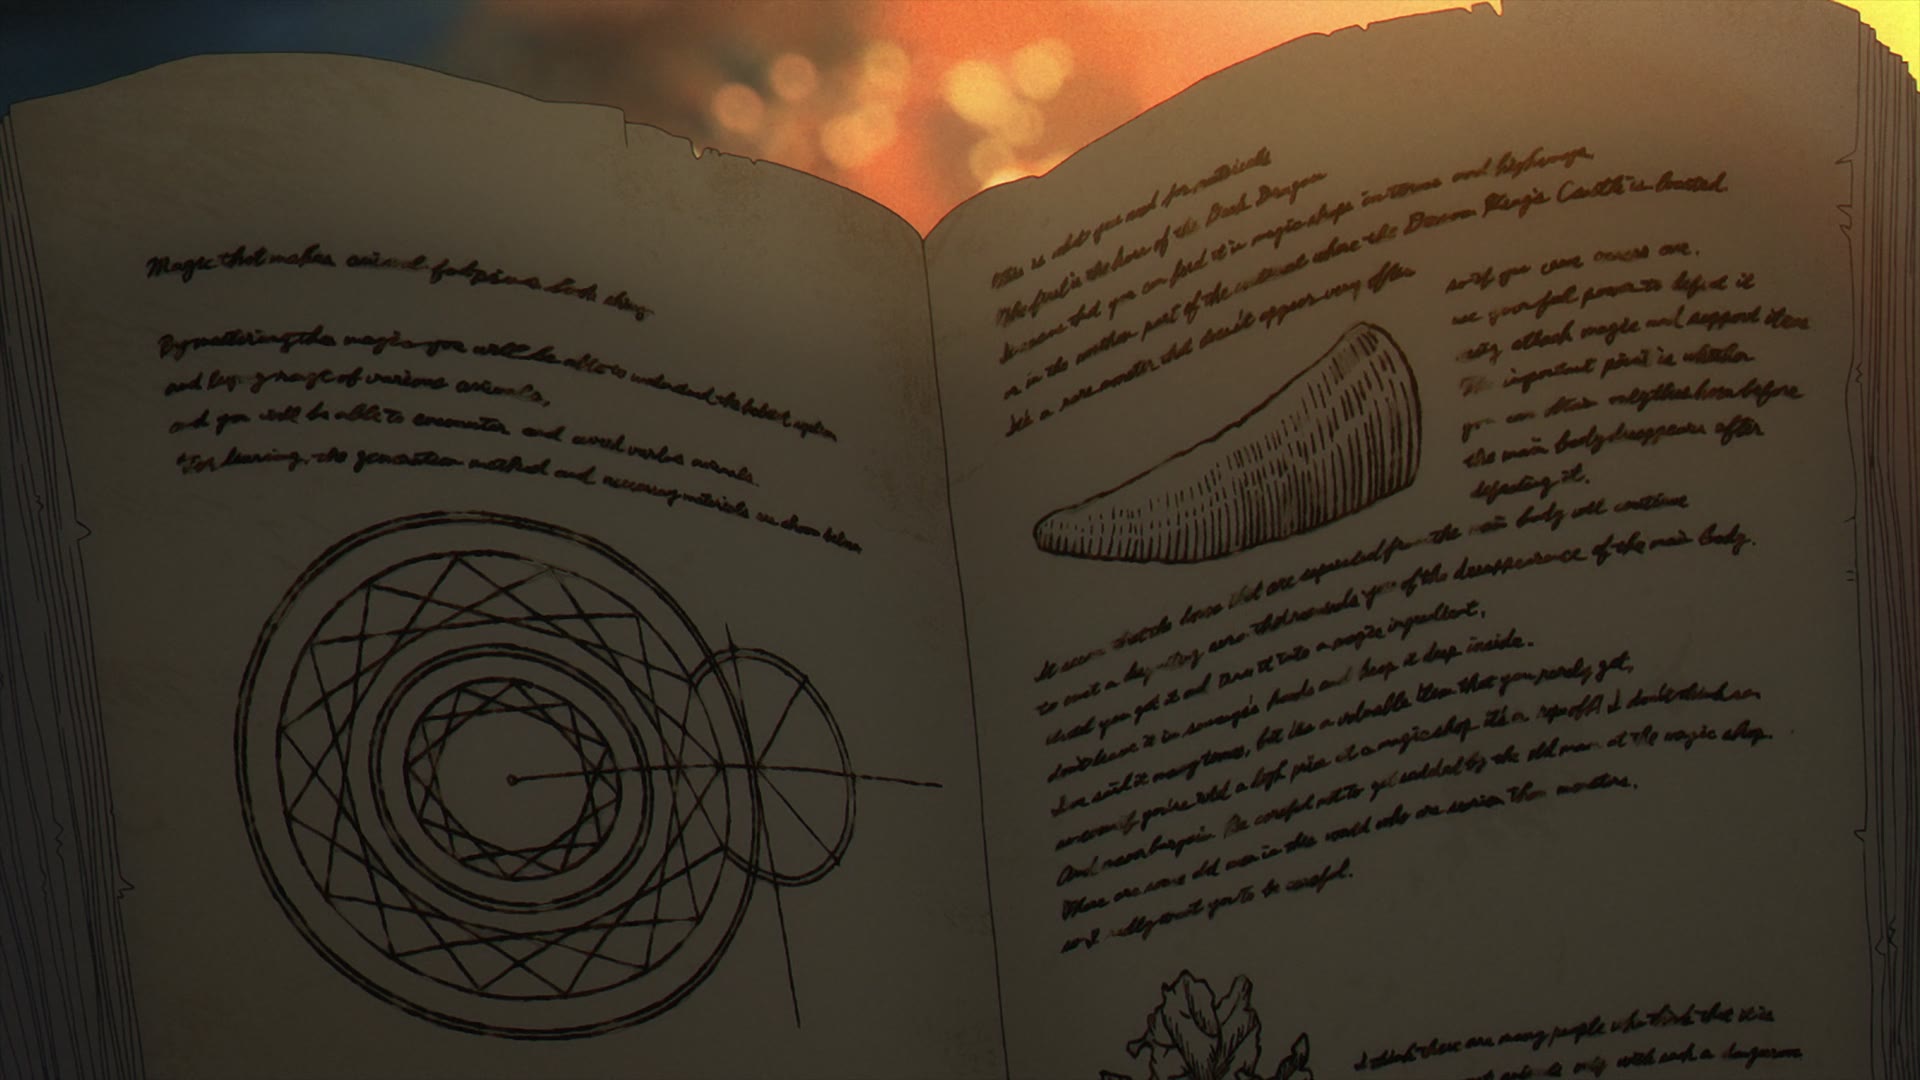 Magic that makes animal footprints look shiny
By mastering this magic you will be able to understand the habitat
and range of various animals,
and you will be able to encounter and avoid various animals.
For learning, the generation method and necessary materials are shown below
This is what you need for materials
The first is the horn of the Dark Dragon
It seems that you can find it in magic shops in towns and highways,
or in the northern part of the continent where the Demon King's Castle is located.
It's a rare monster that doesn't appear very often
so if you come across one,
use your full power to defeat it
using attack magic and support items
The important point is whether
you can obtain only the horn before
the main body disappears after
defeating it.
It seems that the horns that are separated from the main body will continue
to emit a aura that reminds you of the disappearance of the main body.
until you get it and turn it into a magic ingredient.
don't leave it in someone's hands and keep it deep inside.
I've said it many times, but it's a valuable item that you rarely get,
so even if you're told a high price at a magic shop it's a rip off! I don't think so
And never bargain. Be careful not to get saddled by the old man at the magic shop.
There are some old men in this world who are scarier than monsters,
so I really want you to be careful.
I think there are many people who think that it is
only with such a dangerous